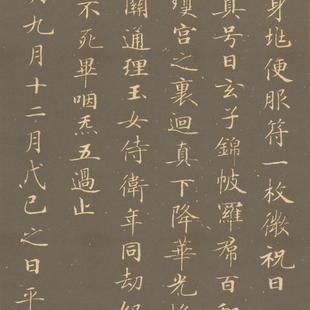 身地便服符一枚微祝曰
真号曰玄子錦帔羅帬百
宫之裏迴真下降華光
關通理玉女侍衛年同劫
不死畢咽炁五過止
九月十二月戊巳之日平